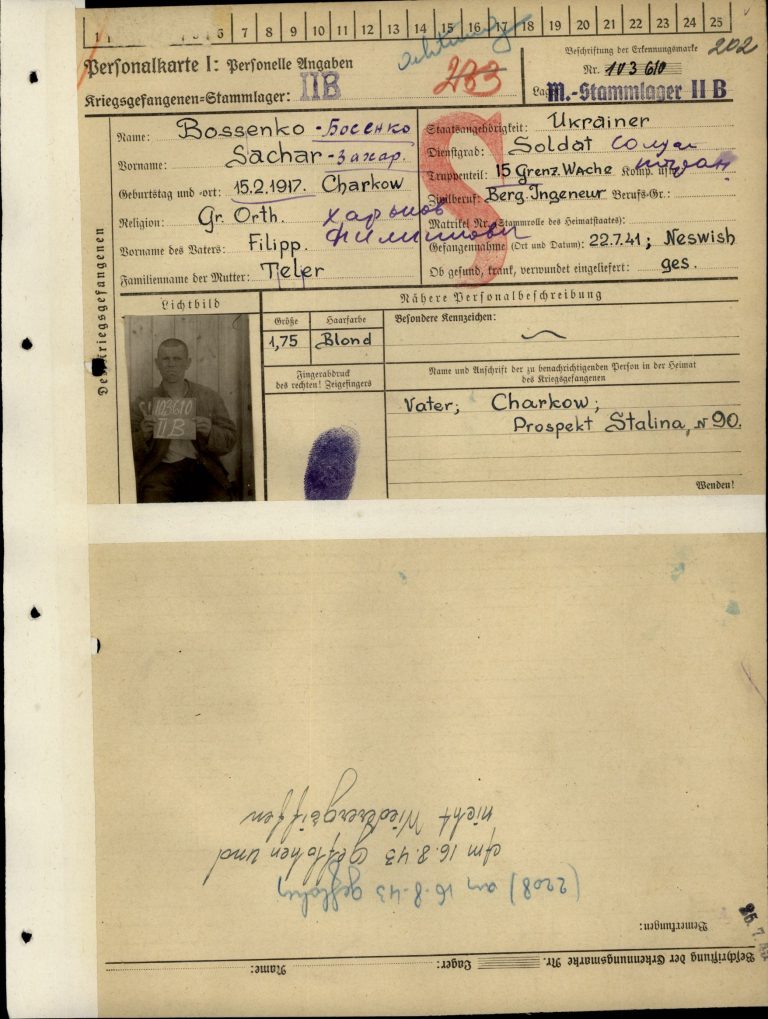 6 7 8 9 10 11 12 13 14 15 16 17 18 19 20 21 22 23 24 25
Achtung
Personalkarte I: Personelle Angaben
Kriegsgefangenen-Stammlager: IIB
Beschriftung der Erkennungsmarke 202
Nr. 103610
M.-Stammlager II B
S
Des Kriegsgefangenen
Name: Bossenko - Босенко
Vorname: Sachar - Захар.
Geburtstag und -ort: 15.2.1917. Charkow
Харьков
Religion: Gr. Orth.
Vorname des Vaters: Filipp.
Familienname der Mutter: Tjeler
Staatsangehörigkeit: Ukrainer
Dienstgrad: Soldat
Truppenteil: 15 Grenz.Wache Komp. usw.
Zivilberuf: Berg.Ingeneur Berufs-Gr.:
Matrikel Nr. (Stammrolle des Heimatstaates):
Gefangennahme (Ort und Datum): 22.7.41; Neswish
Ob gesund, krank, verwundet eingeliefert: ges.
Lichtbild
103610
II B
Nähere Personalbeschreibung
Größe
1,75
Haarfarbe
Blond
Besondere Kennzeichen:
Fingerabdruck
des rechten! Zeigefingers
Name und Anschrift der zu benachrichtigenden Person in der Heimat
des Kriegsgefangenen
Vater; Charkow;
Prospekt Stalina, N 90.
Wenden!
Beschriftung der Erkennungsmarke Nr. Lager: Name:
Bemerkungen:
(2208) am 16.8.43 geflohen
Am 16.8.43 Geflohen und
nicht Wiederergriffen